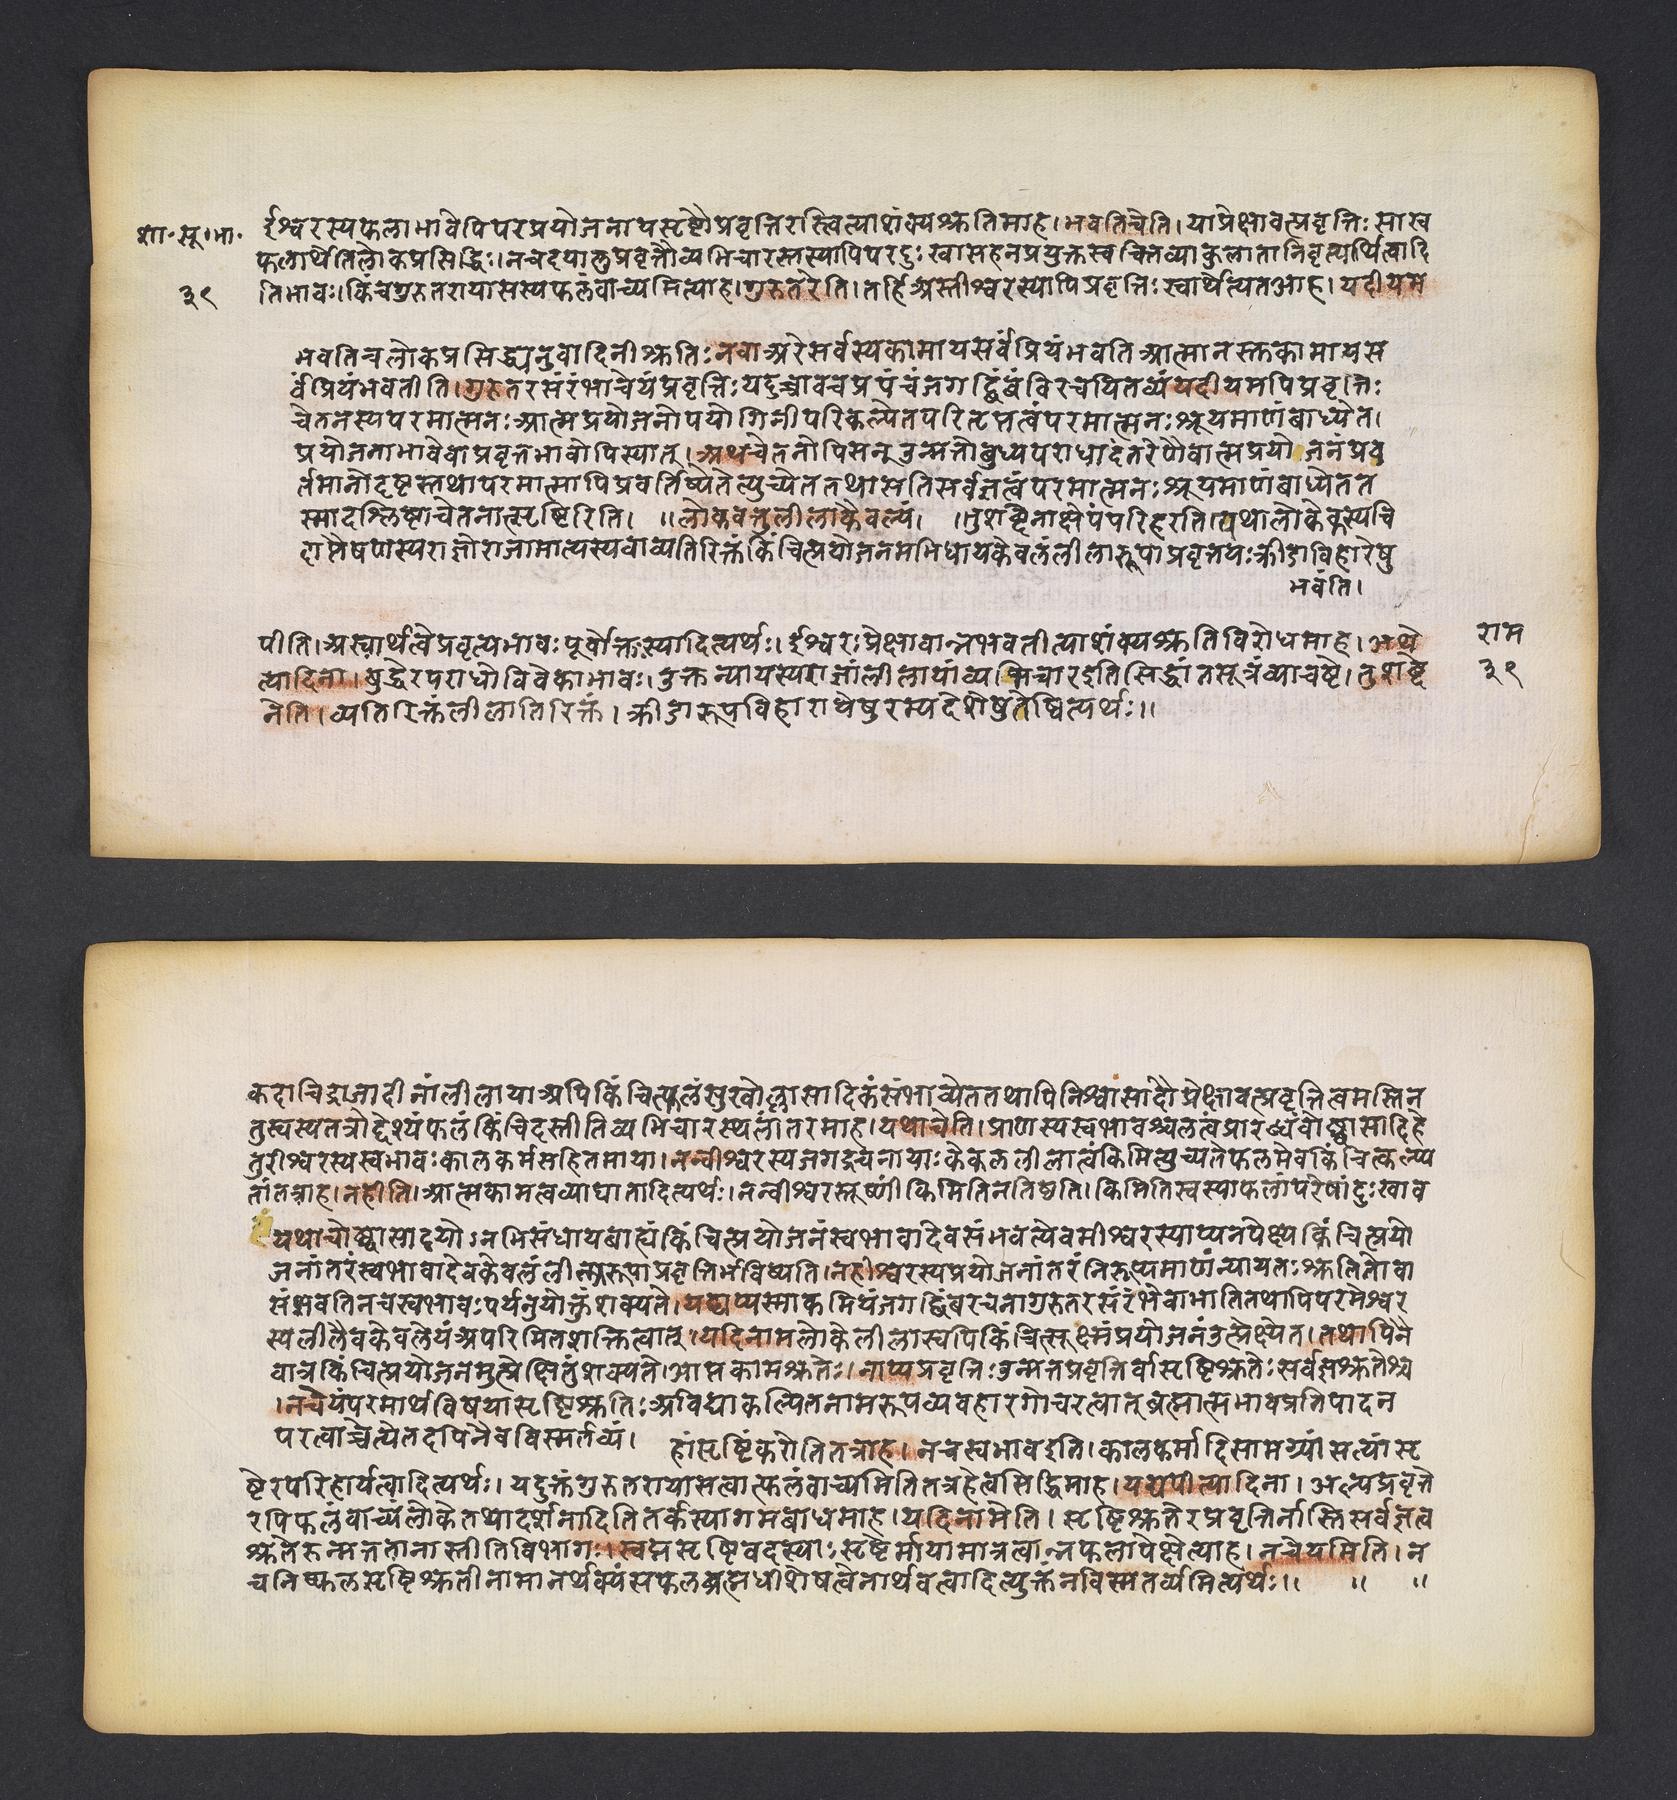 ईश्वरस्यफलाभावेपिपरप्रयोजनायसृष्टौप्रवृत्तिरस्त्वित्याशंक्यश्रुतिमाह।भवतिचेति।याप्रेक्षावत्प्रवृत्तिःसास्व
शा॰सू॰भा॰
फलार्थेतिलोकप्रसिद्धिः।नचदयालुप्रवृत्तौव्यभिचारस्तस्यापिपरदुःखासहनप्रयुक्तस्वचित्तव्याकुलातानिवृत्यर्थित्वादि
३९
तिभावः।किंचगुरुतरायासस्यफलंवाच्यमित्याह।गुरुतरेति।तर्हिअस्तीश्वरस्यापिप्रवृत्तिःस्वार्थेत्यतआह।यदीयम
भवतिचलोकप्रसिद्ध्यनुवादिनीश्रुतिःनवाअरेसर्वस्यकामायसर्वंप्रियंभवतिआत्मानस्तकामायस
र्वंप्रियंभवतीति।गुरुतरसंरंभाचेयंप्रवृत्तिःयदुच्चावचप्रपंचंजगद्बिंबंविरचयितव्यंयदीयमपिप्रवृत्तिः
चेतनस्यपरमात्मनःआत्मप्रयोजनोपयोगिनीपरिकल्प्येतपरितृप्तत्वंपरमात्मनःश्रूयमाणंबाध्येत।
प्रयोजनाभावेवाप्रवृत्तभावोपिस्यात्।अथचेतनोपिसन्नुन्मत्तोबुध्यपराधादंतरेणैवात्मप्रयोजनंप्रव
र्तमानोदृष्टस्तथापरमात्मापिप्रवर्तिष्यतेत्युच्येततथासतिसर्वज्ञत्वंपरमात्मनःश्रूयमाणंबाध्येतत
स्मादश्लिष्टाचेतनात्सृष्टिरिति। ॥लोकवत्तुलीलाकैवल्यं। ॥तुशब्देनाक्षेपंपरिहरति।यथालोकेकस्यचि
दाप्तैषणस्यराज्ञोराजामात्यस्यवाव्यतिरिक्तंकिंचित्प्रयोजनमभिधायकेवलंलीलारूपाप्रवृत्तयःक्रीडाविहारेषु
भवंति।
पीति।अस्वार्थत्वेप्रवृत्यभावःपूर्वोक्तःस्यादित्यर्थः।ईश्वरःप्रेक्षावान्नभवतीत्याशंक्यश्रुतिविरोधमाह।अथे
राम
त्यादिना।बुद्धेरपराधोविवेकाभावः।उक्तन्यायस्यराज्ञांलीलायांव्यभिचारइतिसिद्धांतसूत्रंव्याचष्टे।तुशब्दे
३९
नेति।व्यतिरिक्तंलीलातिरिक्तं।क्रीडारूपविहारायेषुरम्यदेशेषुतेष्वित्यर्थः॥
कदाचिद्राजादीनांलीलायाअपिकिंचित्फलंसुखोल्लासादिकंसंभाव्येततथापिनिश्वासादौप्रेक्षावत्प्रवृत्तित्वमस्तिन
तुस्वस्यतत्रोद्देश्यंफलंकिंचिदस्तीतिव्यभिचारस्थलांतरमाह।यथाचेति।प्राणस्यस्वभावश्चलत्वंप्रारब्धंवोच्छ्वासादिहे
तुरीश्वरस्यस्वभावःकालकर्मसहितमाया।नन्वीश्वरस्यजगद्रचनायाःकेवललीलात्वंकिमित्युच्यतेफलमेवकिंचित्कल्प्य
तांतत्राह।नहीति।आत्मकामत्वव्याघातादित्यर्थः।नन्वीश्वरस्तूष्णींकिमितिनतिष्ठति।किमितिस्वस्याफलांपरेषांदुःखाव
यथाचोच्छ्वासादयोऽनभिसंधायबाह्यंकिंचित्प्रयोजनंस्वभावादेवसंभवत्येवमीश्वरस्याप्यनपेक्ष्यकिंचित्प्रयो
जनांतरंस्वभावादेवकेवलंलीलारूपाप्रवृत्तिर्भविष्यति।नहीश्वरस्यप्रयोजनांतरंनिरूप्यमाणंन्यायतःश्रुतितोवा
संभवतिनचस्वभावःपर्यनुयोक्तुंशक्यते।यद्यप्यस्माकमियंजगद्बिंबरचनागुरुतरसंरंभेवाभातितथापिपरमेश्वर
स्यलीलैवकेवलेयंअपरिमितशक्तित्वात्।यदिनामलोकेलीलास्वपिकिंचित्सूक्ष्मंप्रयोजनंउत्प्रेक्ष्येत।तथापिनै
वात्रकिंचित्प्रयोजनमुत्प्रेक्षितुंशक्यते।आप्तकामश्रुतेः।नाप्यप्रवृत्तिःउन्मत्तप्रवृत्तिर्वासृष्टिश्रुतेःसर्वज्ञश्रुतेश्च
।नचेयंपरमार्थविषयासृष्टिश्रुतिःअविद्याकल्पितनामरूपव्यवहारगोचरत्वात्ब्रह्मात्मभावप्रतिपादन
परत्वाच्चेत्येतदपिनैवविस्मर्तव्यं।
हांसृष्टिंकरोतितत्राह।नचस्वभावइति।कालकर्मादिसामग्र्यांसत्यांसृ
ष्टेरपरिहार्यत्वादित्यर्थः।यदुक्तंगुरुतरायासत्वात्फलंवाच्यमितितत्रहेत्वसिद्धिमाह।यद्यपीत्यादिना।अल्पप्रवृत्ते
रपिफलंवाच्यंलोकेतथादर्शनादितितर्कस्यागमबाधमाह।यदिनामेति।सृष्टिश्रुतेरप्रवृत्तिर्नास्तिसर्वज्ञत्व
श्रुतेरुन्मत्ततानास्तीतिविभागः।स्वप्नसृष्टिवदस्याःसृष्टेर्मायामात्रत्वान्नफलापेक्षेत्याह।नचेयमिति।न
चनिष्फलसृष्टिश्रुतीनामानर्थक्यंसफलब्रह्मधीशेषत्वेनार्थवत्वादित्युक्तंनविस्मतर्व्यमित्यर्थः॥ ॥ ॥